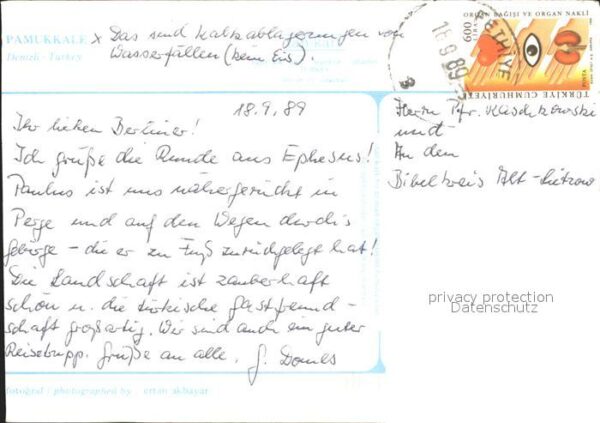 PAMUKKALE x Das sind Kalkablagerungen von
Denizli - Turkey Wasserfällen (kein Eis).
ORGAN BAĞIŞI VE ORGAN NAKLİ
600
LİRA
POSTA
TÜRKİYE CUMHURİYETİ
FETHİYE
18.9.89
3
18.9.89
Ihr lieben Berliner!
Ich grüße die Runde aus Ephesus!
Paulus ist uns nähergerückt in
Perge und auf den Wegen durchs
gebirge - die er zu Fuß zurückgelegt hat!
Die Landschaft ist zauberhaft
schön u. die türkische Gastfreund-
schaft großartig. Wir sind auch ein guter
Reisetrupp. Grüße an alle,
Herrn Pfr. Kaschkowski
und
An den
Bibelkreis Alt-Lietzow
privacy protection
Datenschutz
fotoğraf / photographed by : ertan akbayar